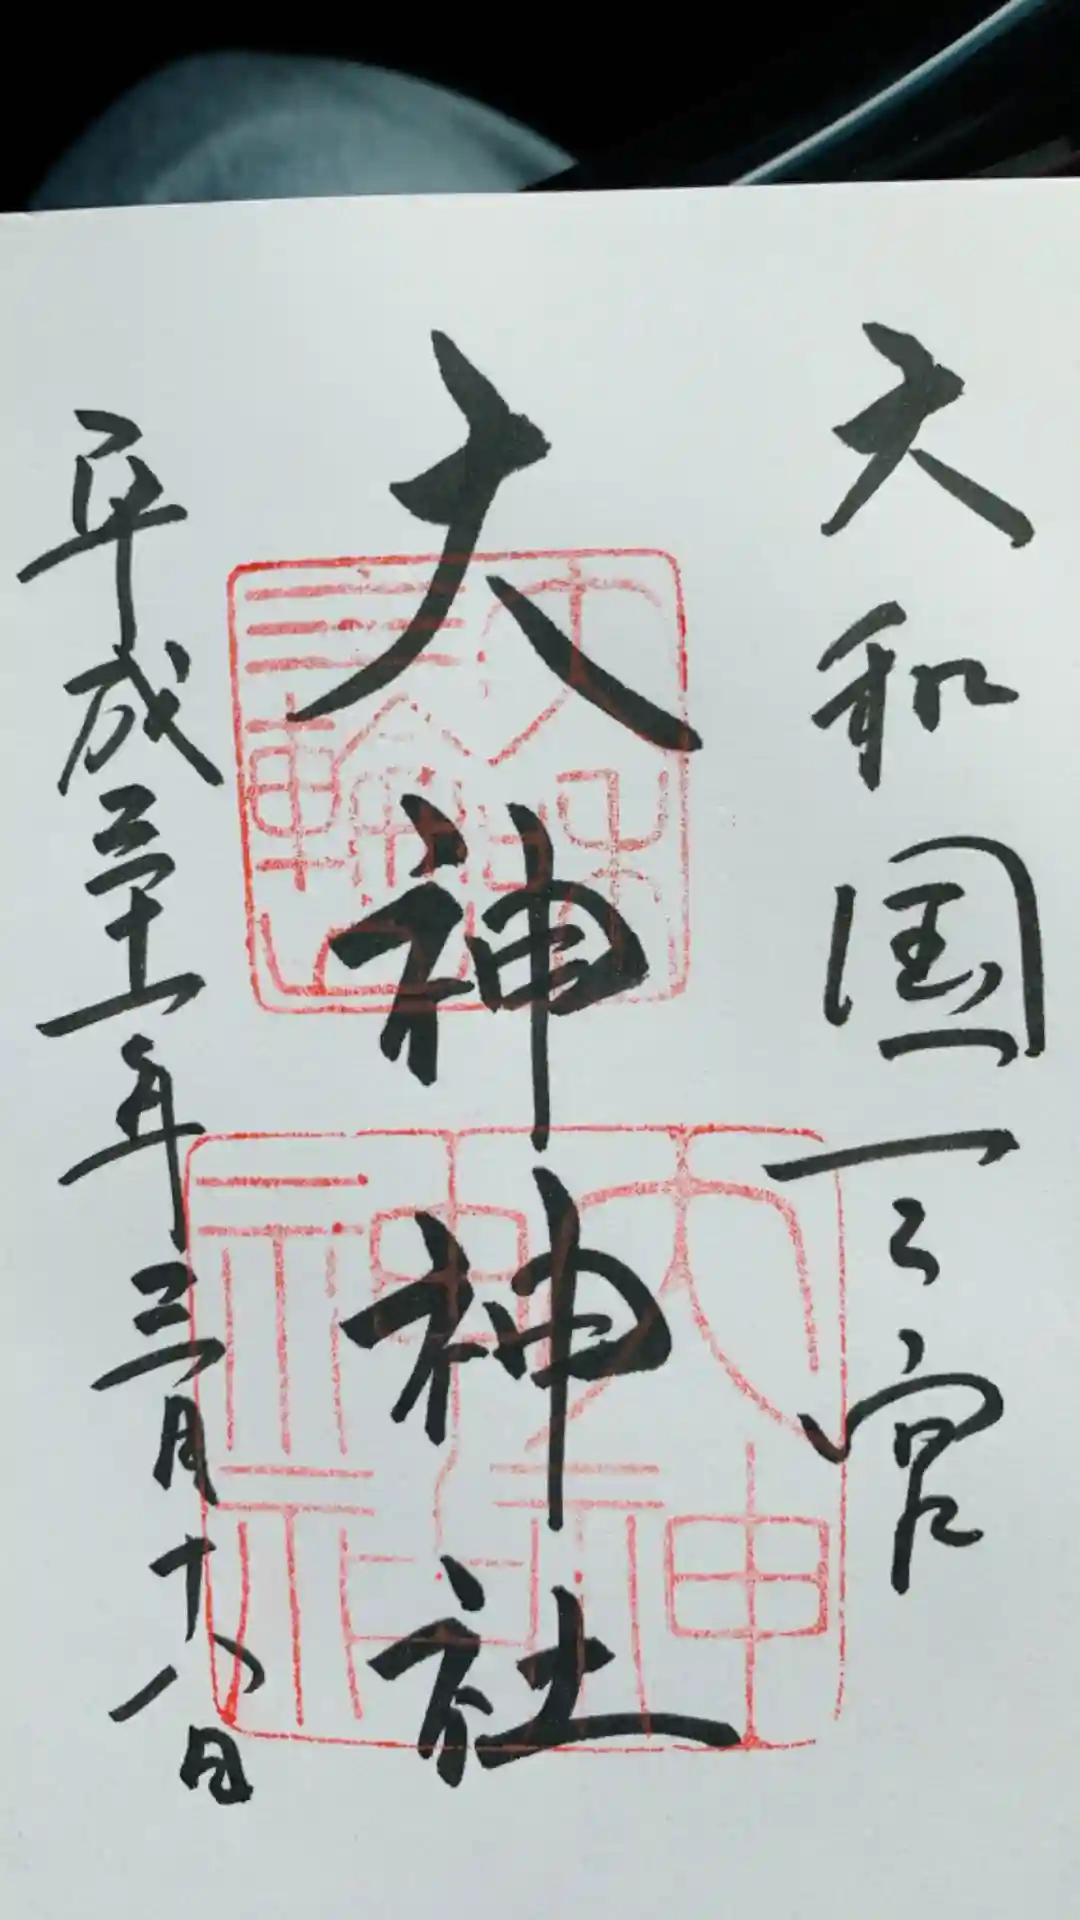 大和国一之宮
大神神社
平成三十一年三月十八日
大神神社